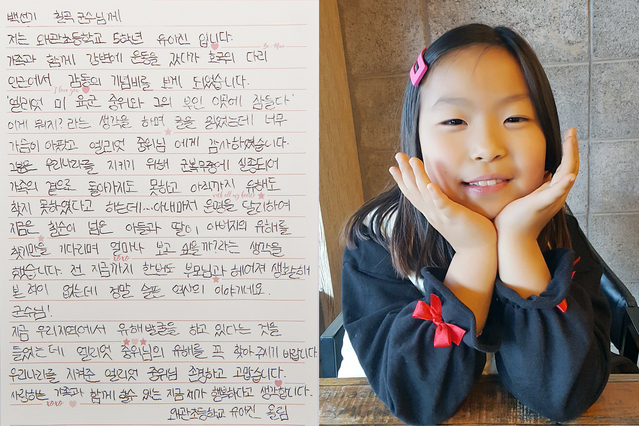 백선기 칠곡 군수님께
저는 왜관초등학교 5학년 유아진 입니다.
가족과 함께 강변에 운동을 갔다가 호국의 다리
인근에서 감동의 기념비를 보게 되었습니다.
I love you
'엘리엇 미 육군 중위와 그의 부인 이곳에 잠들다'
이게 뭐지? 라는 생각을 하며 글을 읽었는데! 너무
가슴이 아팠고 엘리엇 중위님 에게 감사하였습니다.
그분은 우리나라를 지키기 위해 군복무중에 실종되어
가족의 곁으로 돌아가지도 못하고 아직까지 유해도
with all my heart
찾지 못하였다고 하는데...아내마저 운편을 달리하여
지금은 칠순이 넘은 아들과 딸이 아버지의 유해를
찾기만을 기다리며 얼마나 보고 싶을까?라는 생각을
했습니다. 전 지금까지 한번도 부모님과 헤어져 생활해
xoxo
본 적이 없는데 정말 슬픈 역사의 이야기네요.
군수님!
지금 우리지역에서 유해발굴을 하고 있다는 것을
들었는데 엘리엇 중위님의 유해를 꼭 찾아주시기 바랍니다.
우리나라를 지켜준 엘리엇 중위님 존경하고 고맙습니다.
사랑하는 가족과 함께 할수 있는 지금 제가 행복하다고 생각합니다.
xoxo
왜관초등학교 유아진 올림